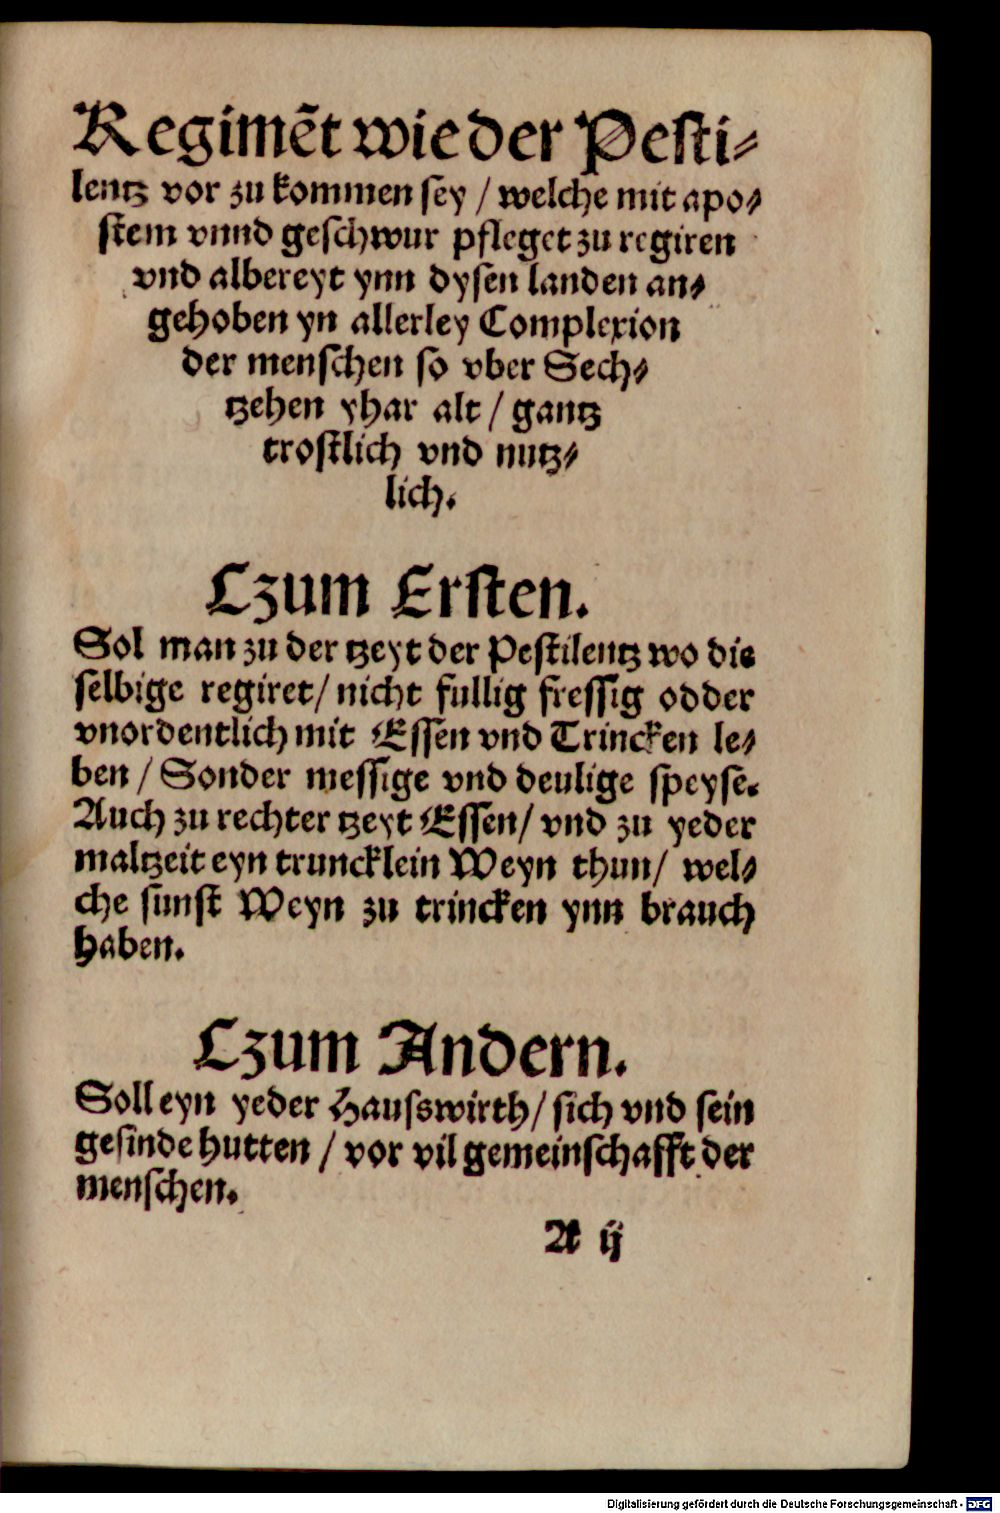 Regimēt wie der Pesti⸗
lentz vor zu kommen sey / welche mit apo⸗
stem vnnd geschwur pfleget zu regiren
vnd albereyt ynn dysen landen an⸗
gehoben yn allerley Complexion
der menschen so vber Sech⸗
tzehen yhar alt / gantz
trostlich vnd nutz⸗
lich.
Czum Ersten.
Sol man zu der tzeyt der Pestilentz wo die
selbige regiret / nicht fullig fressig odder
vnordentlich mit Essen vnd Trincken le⸗
ben / Sonder messige vnd deulige speyse.
Auch zu rechter tzeyt Essen / vnd zu yeder
maltzeit eyn truncklein Weyn thun / wel⸗
che sunst Weyn zu trincken ynn brauch
haben.
Czum Andern.
Soll eyn yeder Hausswirth / sich vnd sein
gesinde hutten / vor vil gemeinschafft der
menschen.
A ij
Digitalisierung gefördert durch die Deutsche Forschungsgemeinschaft - DFG